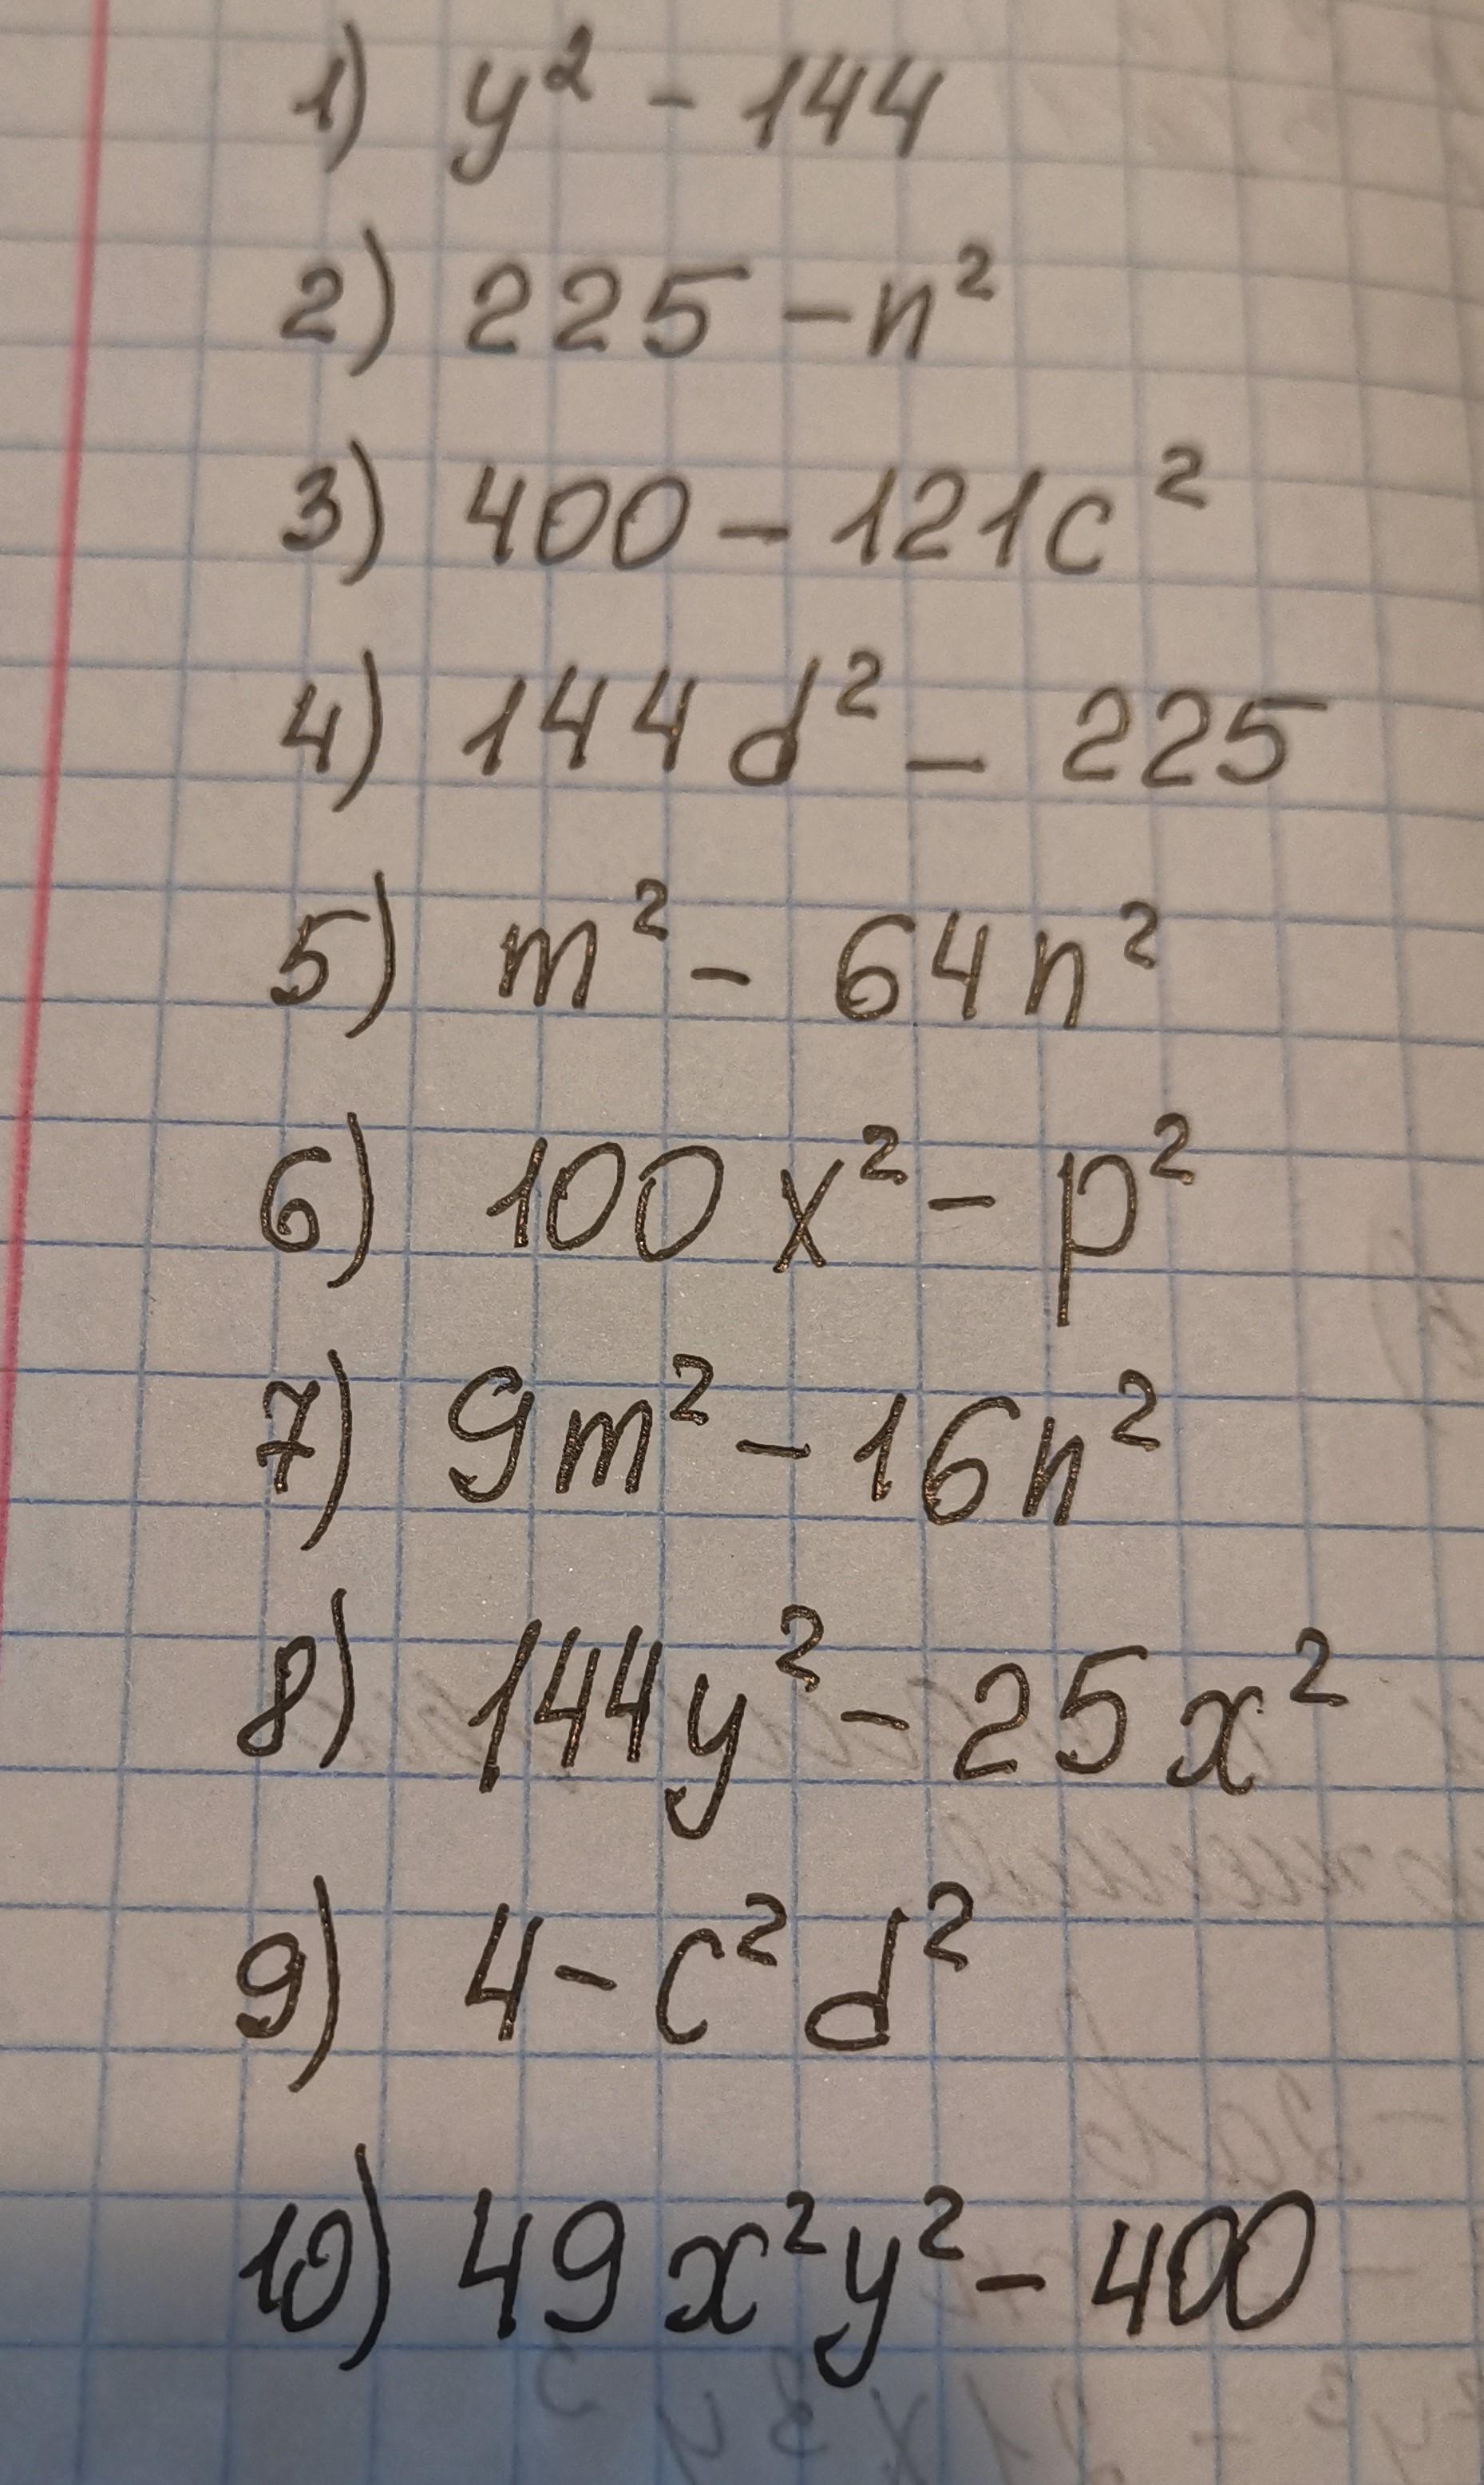 1) y² - 144
2) 225 - n²
3) 400 - 121c²
4) 144d² - 225
5) m² - 64n²
6) 100x² - p²
7) 9m² - 16n²
8) 144y² - 25x²
9) 4 - c²d²
10) 49x²y² - 400